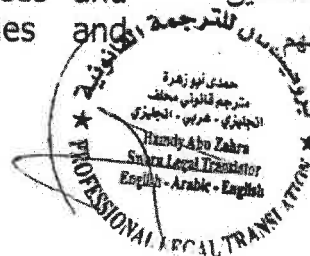 es and
هم
للترجمة القانونية
حمدي أبو زهرة
مترجم قانوني محلف
انجليزي - عربي - انجليزي
Hamdy Abu Zahra
Legal Translator
English - Arabic - English
★ PROFESSIONAL LEGAL TRANSLATION ★